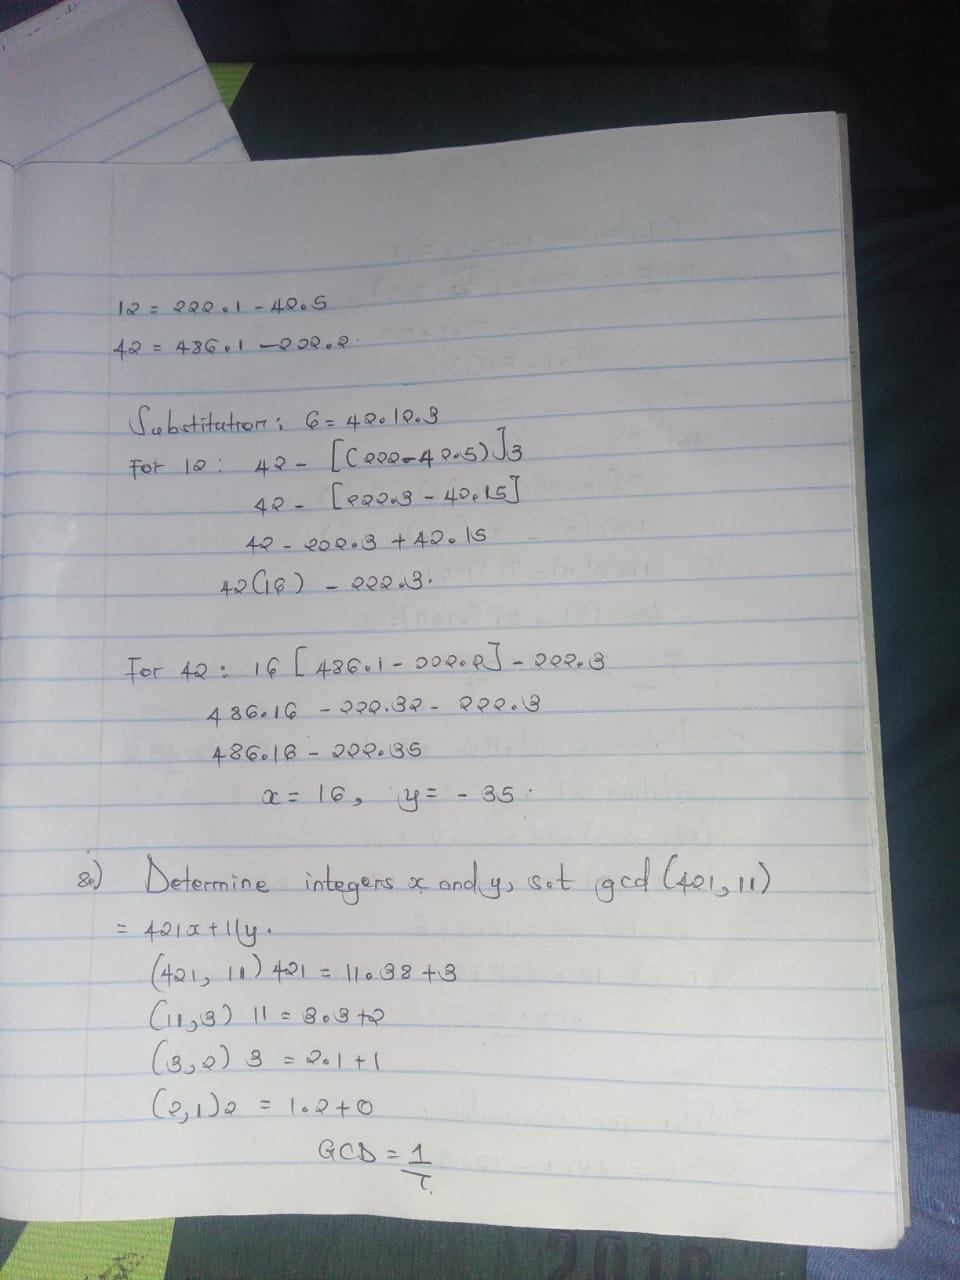 12 = 222.1 - 42.5
42 = 486.1 - 222.2.
Substitution; 6 = 42.12.3
For 12: 42 - [(222-42.5)]3
42 - [222.3 - 42.15]
42 - 222.3 + 42.15
42(16) - 222.3.
For 42: 16[486.1 - 222.2] - 222.3
486.16 - 222.32 - 222.3
486.16 - 222.35
x = 16, y = - 35.
8.) Determine integers x and y, s.t gcd (421, 11)
= 421x + 11y.
(421, 11) 421 = 11.38 + 3
(11,3) 11 = 3.3 + 2
(3,2) 3 = 2.1 + 1
(2,1) 2 = 1.2 + 0
GCD = 1
2016